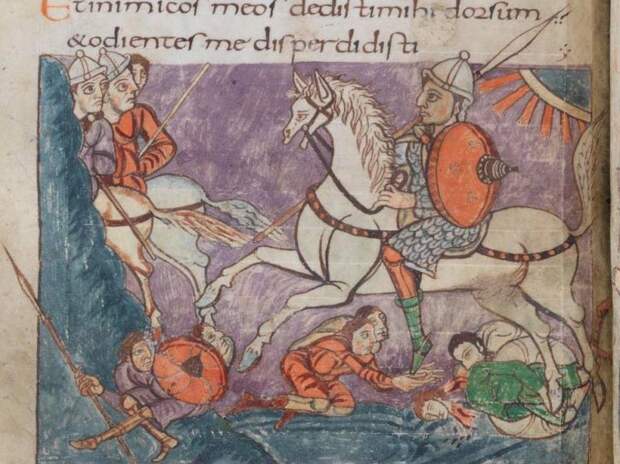 Et inimicos meos dedisti mihi dorsum
& odientes me disperdidisti